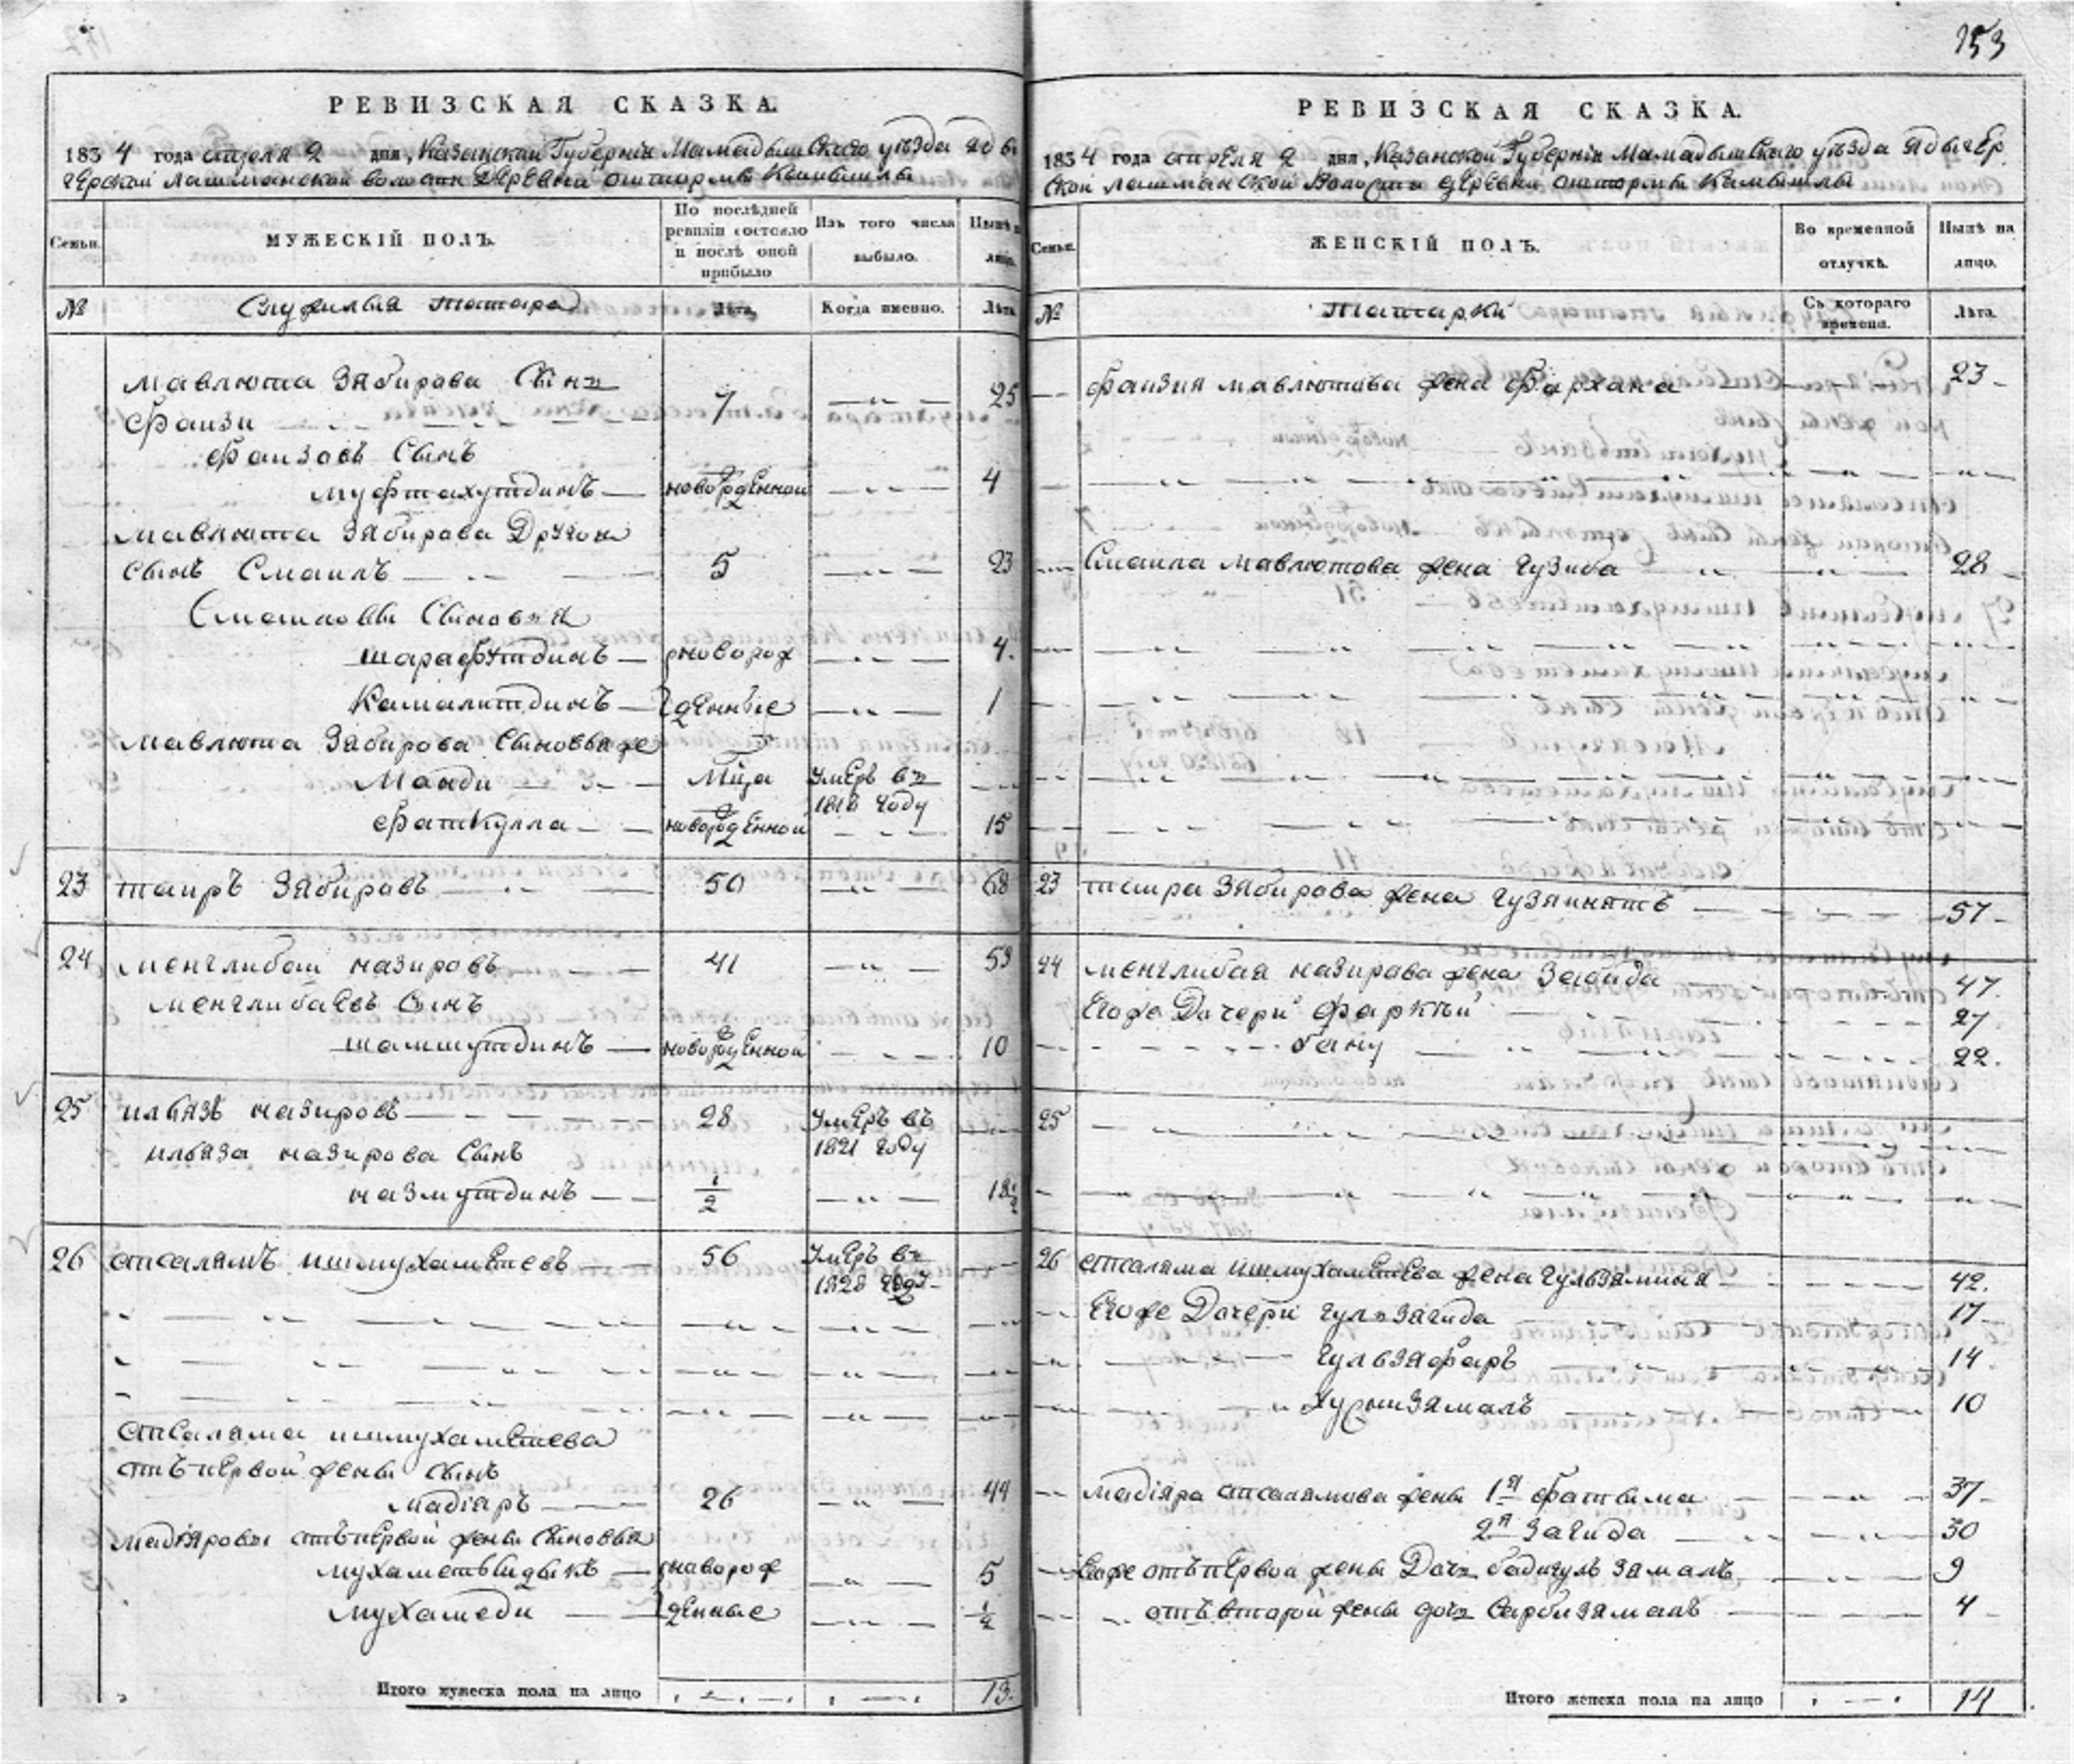 153
РЕВИЗСКАЯ СКАЗКА.
1834 года апреля 2 дня, Казанской Губерніи Мамадышскаго уѣзда Ядыгерской лашманской волости деревни Оштормы
МУЖЕСКІЙ ПОЛЪ.
Семьи.
По послѣдней ревизіи состояло и послѣ оной прибыло
Изъ того числа выбыло.
Нынѣ на лицо.
№
Служилыя татара
Лѣта.
Когда именно.
Лѣта
Мавлюта Зябирова Сынъ
Фаизи 7 25
Фаизовъ Сынъ
Муфтахутдинъ новорожденной 4
Мавлюта Зябирова Другой
Сынъ Смаилъ 5 23
Смаиловы Сыновья
Шарафутдинъ новорож 4.
Камалитдинъ денные 1
Мавлюта Зябирова Сыновья же
Маади Умеръ въ
1818 Году
Фаткулла новорожденной 15
23 Таиръ Зябировъ 50 68
24 Менглибай Назировъ 41 59
Менглибаевъ Сынъ
Шамшутдинъ новорожденной 10
25 Ильязъ Назировъ 28 Умеръ въ
1821 Году
Ильяза Назирова Сынъ
Назмутдинъ 1/2 18 1/2
26 Апсалямъ Ишмухаметевъ 56 Умеръ въ
1828 Году
Апсаляма Ишмухаметева
отъ первой жены Сынъ
Мадіяръ 26 44
Мадіяровы отъ первой жены Сыновья
Мухаметьсидыкъ новорож 5
Мухамеди денные 1/2
Итого мужеска пола на лицо 13.
РЕВИЗСКАЯ СКАЗКА.
1834 года апреля 2 дня, Казанской Губерніи Мамадышскаго уѣзда Ядыгер
ской лашманской Волости деревни Оштормы
Семьи.
ЖЕНСКІЙ ПОЛЪ.
Во временной отлучкѣ.
Нынѣ на лицо.
№
Татарки
Съ котораго времени.
Лѣта.
Фаизия Мавлютова жена Фархана 23
Смаила Мавлютова жена Гузиба 28
23 Таира Зябирова жена Гузяинятъ 57
24 Менглибая Назирова жена Забида 47.
Егоже Дочери Фаркей 27
бану 22.
25
26 Апсаляма Ишмухаметева жена Гульзямиля 42.
Егоже Дочери Гульзагида 17
Гульзяфаръ 14
Хуснизямалъ 10
Мадіяра Апсалямова жены 1я Фатыма 37
2я Загида 30
Егоже отъ первой жены Дочь бадигулъ замалъ 9
отъ второй жены дочь Сарбизямалъ 4
Итого женска пола на лицо 14